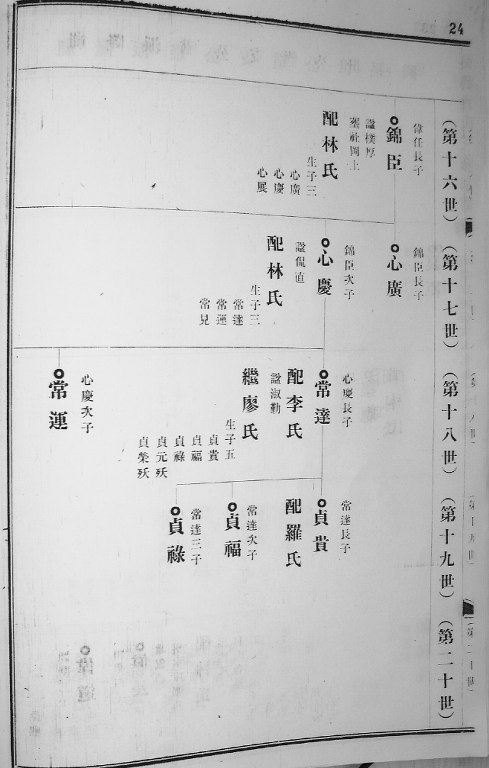 24
（第十六世）
（第十七世）
（第十八世）
（第十九世）
（第二十世）
錦臣
偉任長子
諡樸厚
配林氏
生子三
心廣
心慶
心展
心廣
錦臣長子
心慶
錦臣次子
諡侃直
配林氏
生子三
常達
常運
常見
常達
心慶長子
配李氏
諡淑勤
繼廖氏
生子五
貞貴
貞福
貞祿
貞元殀
貞榮殀
常運
心慶次子
貞貴
常達長子
配羅氏
貞福
常達次子
貞祿
常達三子